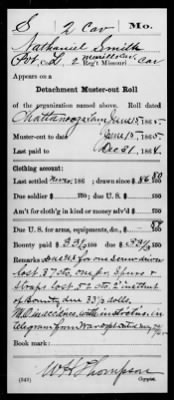 S 2 Cav Mo.
Nathaniel Smith
Pvt., L, 2 Reg't Missouri Cav
Appears on a
Detachment Muster-out Roll
of the organization named above. Roll dated
Chattanooga Tenn June 15, 1865.
Muster-out to date June 15, 1865.
Last paid to Dec 31, 1864.
Clothing account:
Last settled , 186 ; drawn since $ 56 80
Due soldier $ 100; due U.S. $ 100
Am't for cloth'g in kind or money adv'd $ 100
Due U.S. for arms, equipments, &c., $ 89
Bounty paid $ 100; due $ 100
Remarks: Due U.S. for one screw driver
lost 37 cts. one pr. Spurs &
Straps lost 52 cts. 2d inst. of
Bounty due 33⅓ dolls.
M.O. in accdnce. with instrctns. in
telegram from War dept dated May
Book mark:
W H Thompson
(343) Copyist.